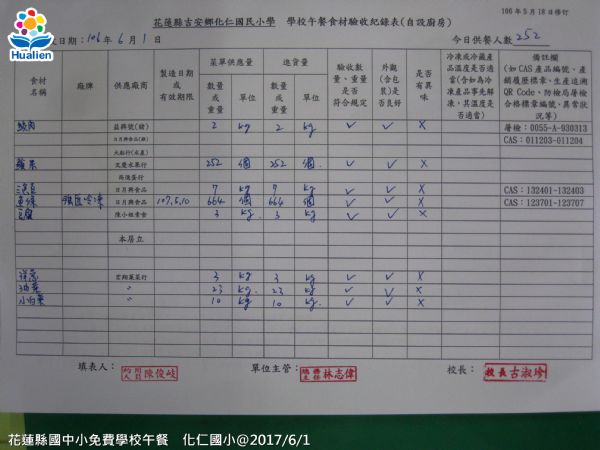 106年5月18日修訂
花蓮縣吉安鄉化仁國民小學 學校午餐食材驗收紀錄表(自設廚房)
Hualien
日期：106年6月1日 今日供餐人數 252
食材名稱 廠牌 供應廠商 製造日期或有效期限 菜單供應量 進貨量 驗收數量、重量是否符合規定 外觀(含包裝)是否良好 是否有異味 冷凍或冷藏產品溫度是否適當(含如為冷凍產品事先解凍，其溫度是否適當) 備註欄(如CAS產品編號、產銷履歷標章、生產追溯QR Code、防檢局屠檢合格標章編號、異常狀況等)
數量或重量 單位 數量或重量 單位
絞肉 益興號(豬) 2 kg 2 kg ✓ ✓ X 屠檢：0055-A-930313
日月興食品(雞) CAS：011203-011204
大船行(水產)
蘋果 又慶水果行 252 個 252 個 ✓ ✓ X
尚進蛋行
日月興食品 7 kg 7 kg ✓ ✓ X CAS：132401-132403
日月興食品 107.5.10 664 個 664 個 ✓ ✓ X CAS：123701-123707
豆腐 陳小姐素食 3 kg 3 kg ✓ ✓ X
本居立
洋蔥 宏翔蔬菜行 3 kg 3 kg ✓ ✓ X
〃 23 kg 23 kg ✓ ✓ X
小白菜 〃 10 kg 10 kg ✓ ✓ X
填表人： 陳俊岐 單位主管： 總務主任 林志偉 校長： 校長 古淑珍
花蓮縣國中小免費學校午餐 化仁國小@2017/6/1